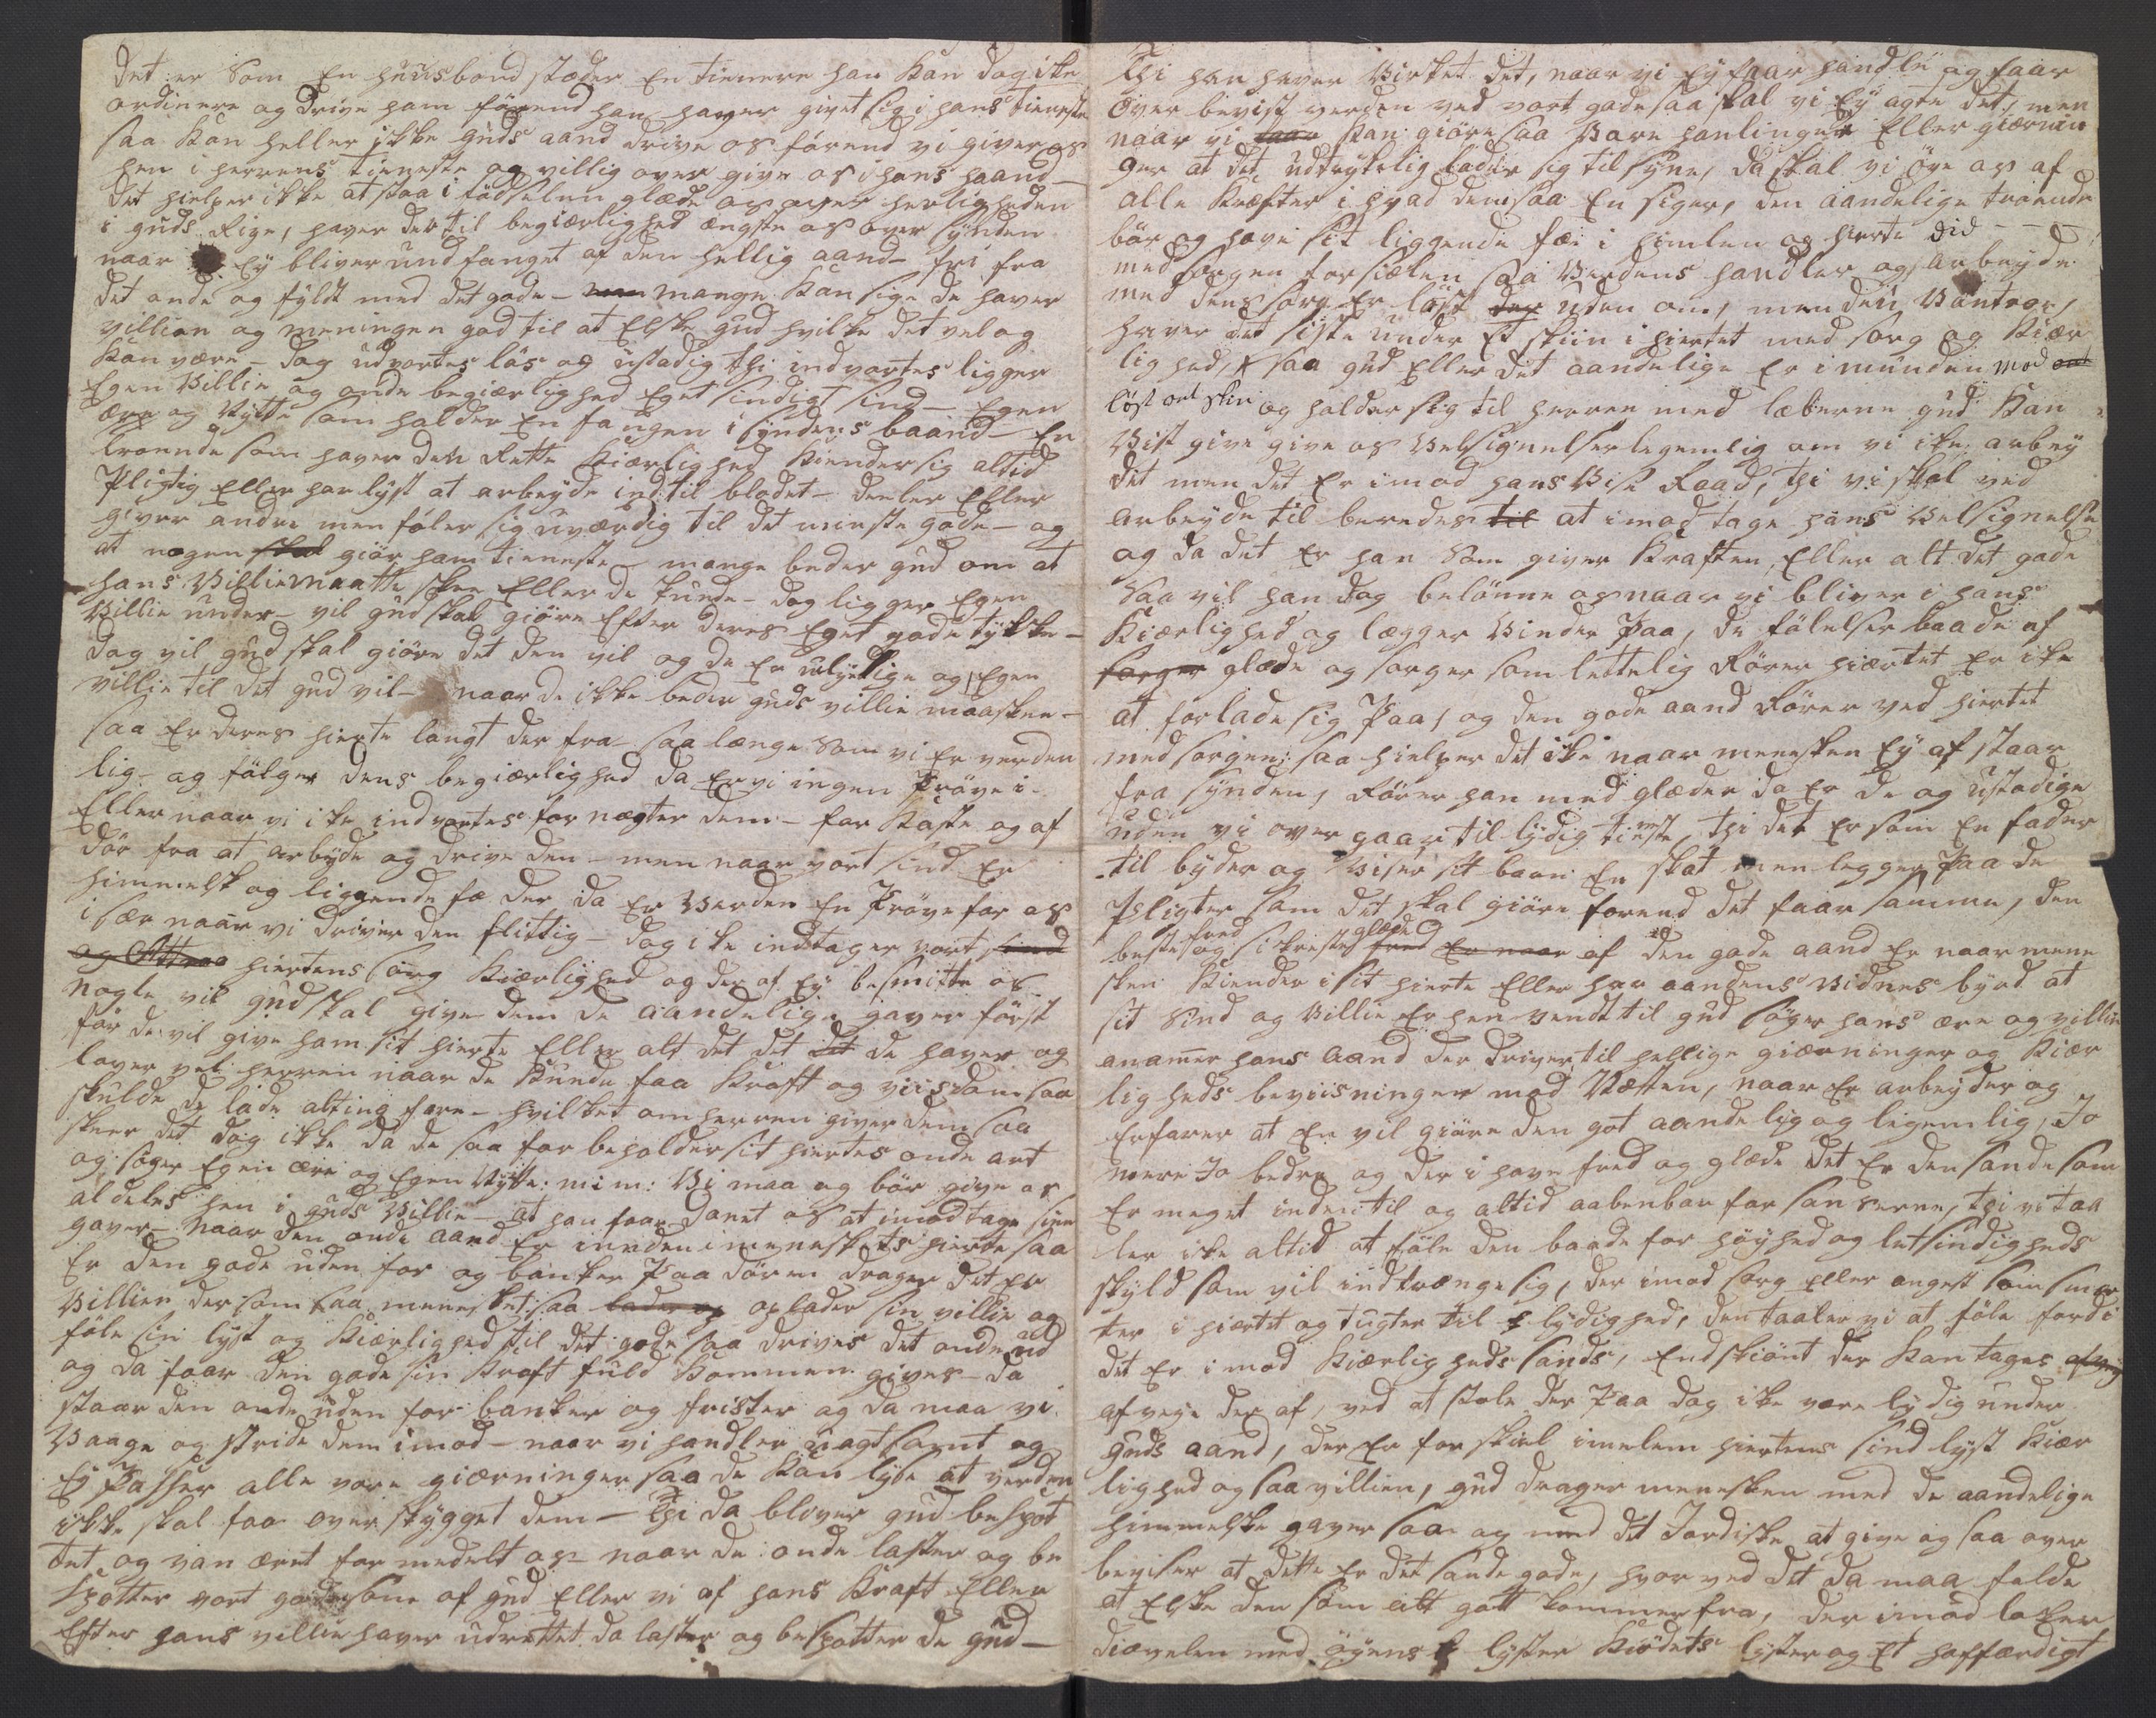 det er Som En huusbond stæder En tienere han kan dog ike
ordinere og drive ham förend han haver givet sig i hans tieneste
saa kan heller ikke guds aand drive os förend vi giver os
hen i herrens tieneste og villig over give os i hans haand –
det hielper ikke at staa i födselen glæde os over herligheden
i guds Rige, haver der til begiærlighed ængste os over synden
naar Ey bliver undfanget af den hellig aand – fri fra
det onde og fyldt med det gode – man mange kan sige de haver
villien og meeningen god til at Elske gud hvilke det vel og
kan være – dog udvortes lös og ustadig thi indvortes ligger
Egen Villie og onde begiærlighed Eget sindigt sind – Egen
ære og Nytte som holder En fangen i syndens baand – En
troende som haver den Rette kiærlighed kiender sig altid
Pligtig Eller har lyst at arbeyde ind til blodet – deeler Eller
giver andre men föler sig uværdig til det mindste gode – og
at nogen skal giör ham tieneste – mange beder gud om at
hans Villie maatte skee Eller de kunde – dog ligger Egen
Villie under – vil gud skal giöre Efter deres Eget gode tykke –
dog vil gud skal giöre det den vil og de Er ulydige og Egen
villie til det gud vil – naar de ikke beder guds villie maa skee –
saa Er deres hierte langt der fra – saa længe Som vi Er verden
lig – og fölger dens begiærlighed da Er vi ingen Pröve i
Eller naar vi ike indvortes for nægter dem – for kaste og af
dör fra at arbyde og drive den – men naar vort sind Er
himmelsk og liggende fæ der da Er Verden En Pröve for os
i sær naar vi driver den flittig – dog ike indtager vort sind
og Attraa hiertens sorg kiærlighed og der af Ey besmitte os
nogle vil gud skal give dem de aandelige gaver först
för de vil give ham sit hierte Eller alt det det det de haver og
lover vel herren naar de kunde faa kraft og viisdom saa
skulde de lade alting fare – hvilket om herren giver dem saa
skeer det dog ikke da de saa for beholder sit hiertes onde art
og söger Egen ære og Egen Nytte: m: m: Vi maa og bör give os
aldeles hen i guds Villie – at han faar Danet os at imodtage sine
gaver – naar den onde aand Er inden i meneskets hierte saa
Er den gode uden for og banker Paa dören drager det Er
Villien der som faa menesket saa lader op oplader sin villie og
föle sin lyst og kiærlighed til det gode saa drives det onde ud
og da faar den gode sin kraft fuld kommen gives – da
staar den onde uden for banker og frister og da maa vi
Vaage og stride dem imod – naar vi handler uagtsomt og
Ey Passer alle vore giærninger saa de kan lyse at verden
ikke skal faa over skygget dem – thi da bliver gud bespot
tet og van æret for medelst os – naar de onde laster og be
spotter vort gode som af gud Eller vi af hans kraft Eller
Efter hans villie haver udrettet da laster og bespotter de gud –
Thi han haver Virket det, naar vi Ey faar handle og faar
över bevist verden ved vort gode saa skal vi Ey agte det, men
naar vi kan giöre saa Vare hanlinger Eller giærnin
ger at det udtrykelig lader sig til syne, da skal vi öve os af
alle kræfter i hvad dem saa En siger, den aandelige troende
bör og have sit liggende fæ i himlen og hierte did
med sorgen for siælen saa Verdens handler og arbeyde
med dens sorg Er löst der uden om, men den Vantroe,
haver det siste under Et skiin i hiertet med sorg og kiær
lighed, saa gud Eller det aandelige Er i munden mod
löst ord skin og holder sig til herren med læberne gud kan
Vist give give os Velsignelser legemlig om vi ike arbey
det men det Er imod hans Vise Raad, thi vi skal ved
arbeyde til beredes til at imod tage hans Velsignelse
og da det Er han Som giver kraften, Eller alt det gode
Saa vil han dog belönne os naar vi bliver i hans
kiærlighed og lægger Vinde Paa, de fölelser baade af
sorger glæde og sorger som lettelig Rörer hiærtet Er ike
at forlade sig Paa, og den gode aand Rörer ved hiertet
med sorgen: saa hielper det ike naar menesken Ey af staar
fra synden, Rörer han med glæder da Er de og ustadige
uden vi over gaar til lydig tieneste, thi det Er som En fader
til byder og Viser sit baan En skat men legger Paa de
Pligter som det skal giöre forend det faar samme, den
beste fred og sikreste glæde fred Er naar af den gode aand Er naar mene
sken kiender i sit hierte Eller har aandens Vidnes byrd at
sit Sind og Villie Er hen vendt til gud söger hans ære og villie
anammer hans aand der driver til hellige giærninger og kiær
ligheds beviisninger mod Næsten, naar En arbeyder og
Erfarer at En vil giöre den got aandelig og legemlig, Jo
meere Jo bedre og der i have fred og glæde det Er den sande som
Er meget inden til og altid aabenbar for sanserne, thi vi taa
ler ike altid at föle den baade for höyhed og letsindigheds
skyld som vil indtrænge sig, der imod sorg Eller angest som smer
ter i hiærtet og tugter til lydighed, den taaler vi at föle fordi
det Er imod kiærligheds sands, Endskiönt der kan tages
af veye der af, ved at stole der Paa dog ike være lydig under
guds aand, der Er for skiel imelem hiertens sind lyst kiær
lighed og saa villien, gud drager menesken med de aandelige
himmelske gaver saa og med det Jordiske at give og saa over
beviser at dette Er det sande gode, hvor ved det da maa falde
at Elske den som alt gott kommer fra, der imod loker
dievelen med öyens lyster kiödets lyster og Et hoffærdigt